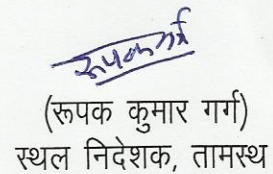 रूपक गर्ग
(रूपक कुमार गर्ग)
स्थल निदेशक, तामस्थ